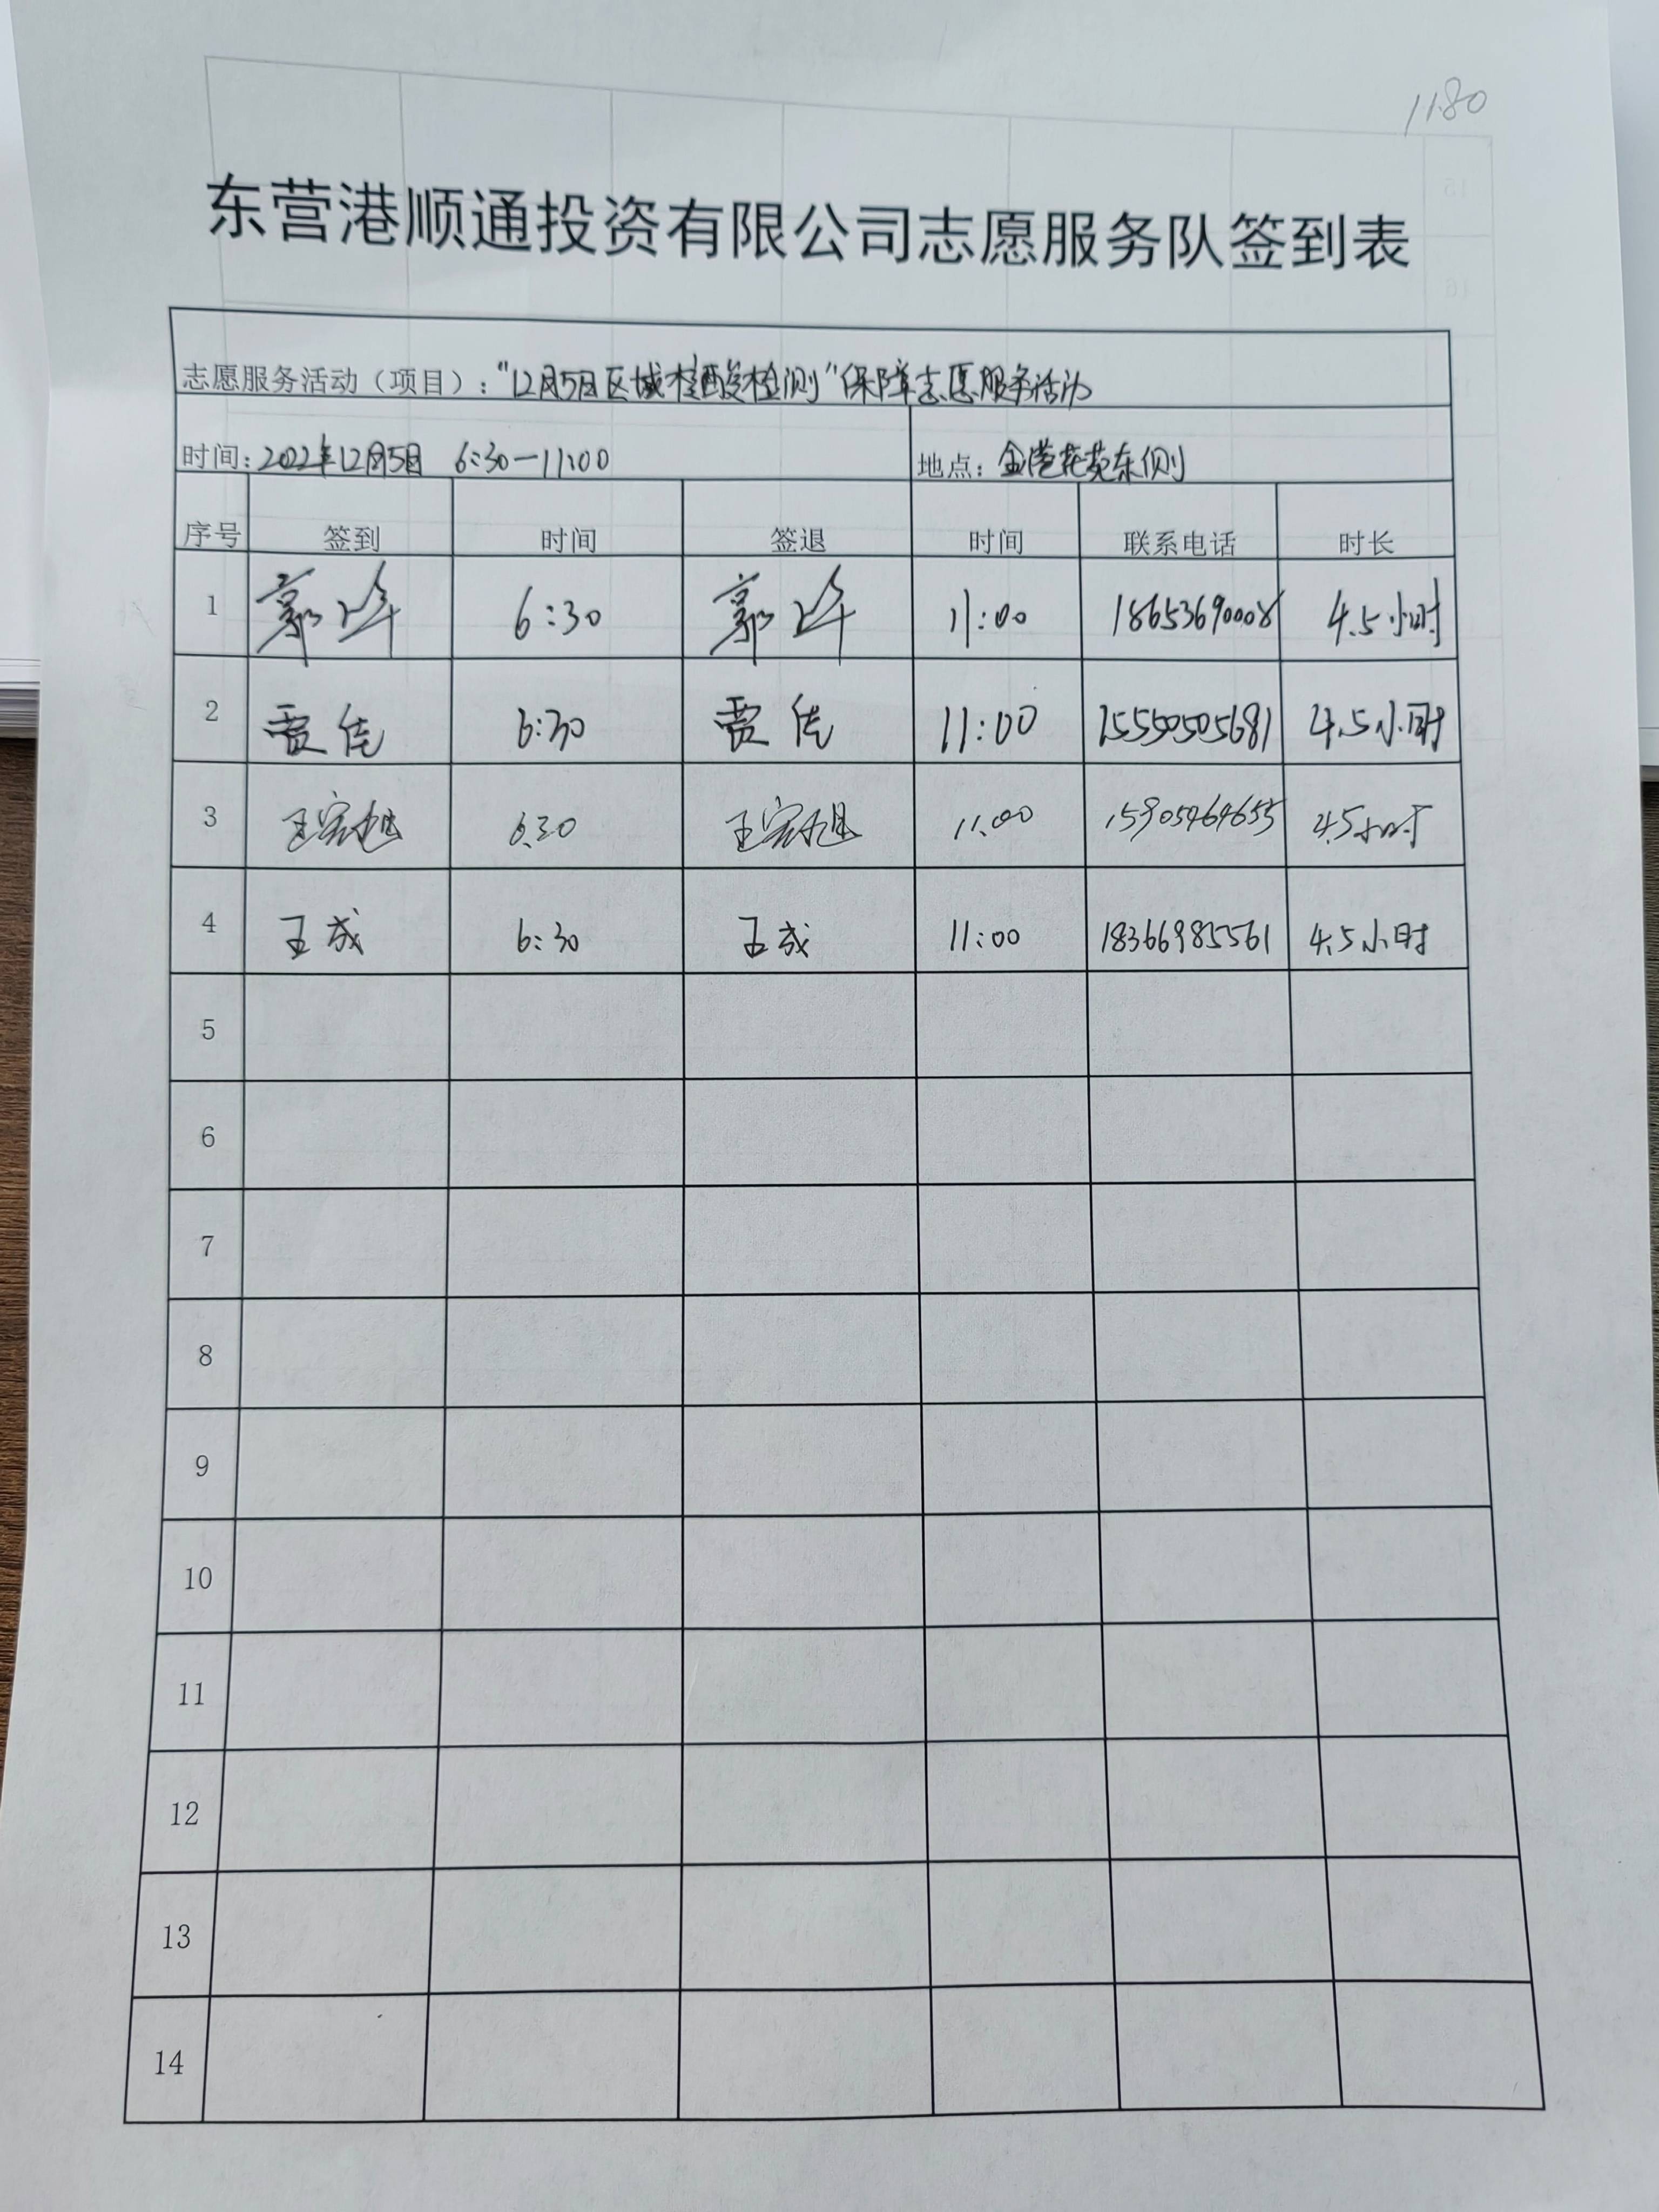 1180
东营港顺通投资有限公司志愿服务队签到表
志愿服务活动（项目）：“12月5日区域核酸检测”保障志愿服务活动
时间：2022年12月5日 6:30-11:00 地点：金港花苑东侧
序号 签到 时间 签退 时间 联系电话 时长
1 郭 6:30 郭 11:00 18653690008 4.5小时
2 贾佳 6:30 贾佳 11:00 15550505681 4.5小时
3 王宗旭 6:30 王宗旭 11:00 15905464655 4.5小时
4 王成 6:30 王成 11:00 18366985561 4.5小时
5
6
7
8
9
10
11
12
13
14